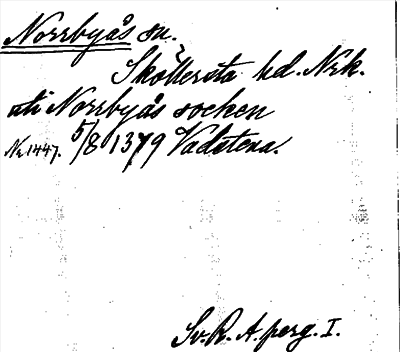 Norrbyås sn.
Sköllersta hd. Nrk.
uti Norrbyås socken
Nr 1447. 5/8 1379 Vadstena.
Sv. R. A. perg. I.